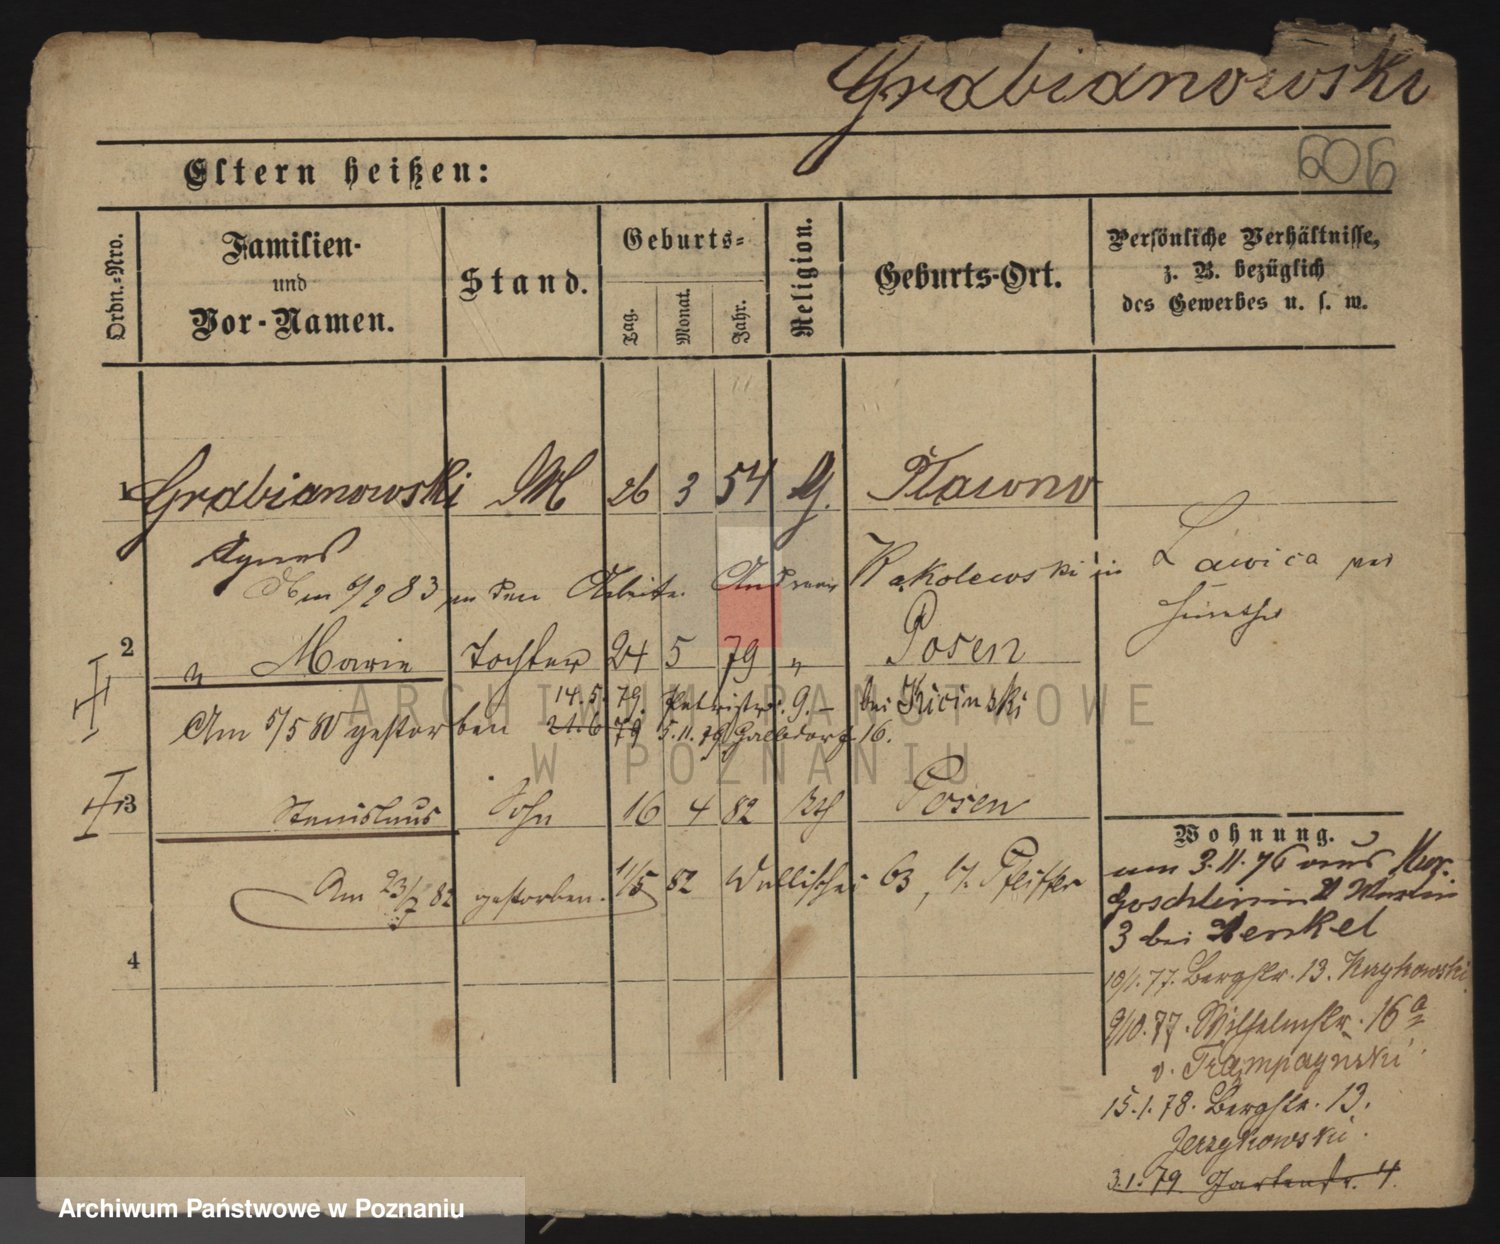 Grabianowski
606
Eltern heißen:
Ordn.-Nro.
Familien-
und
Vor-Namen.
Stand.
Geburts-
Tag.
Monat.
Jahr.
Religion.
Geburts-Ort.
Persönliche Verhältnisse,
z. B. bezüglich
des Gewerbes u. s. w.
1 Grabianowski M 26 3 54 g. Pławno
Agnes
9/2 83 an den Arbeiter Andreas Kąkolewski in Lawica
2 " Marie Tochter 24 5 79 " Posen
14.5.79. Petristr. 9. bei Kicinski
Am 5/5 80 gestorben 21.6 79 5.11.79 Halbdorf 16.
3 Stanislaus Sohn 16 4 82 kth Posen
Am 23/7 82 gestorben. 11/5 82 Wallischei 63, b/. Pfeiffer
4
Wohnung.
3.11.76 aus
3 bei Henkel
10/1.77. Bergstr. 13.
9/10.77. Wilhelmstr. 16 a
v. Trąmpczyński
15.1.78. Bergstr. 13.
Jerzykowski.
3.1.79 Gartenstr. 4.
ARCHIWUM PAŃSTWOWE
W POZNANIU
Archiwum Państwowe w Poznaniu